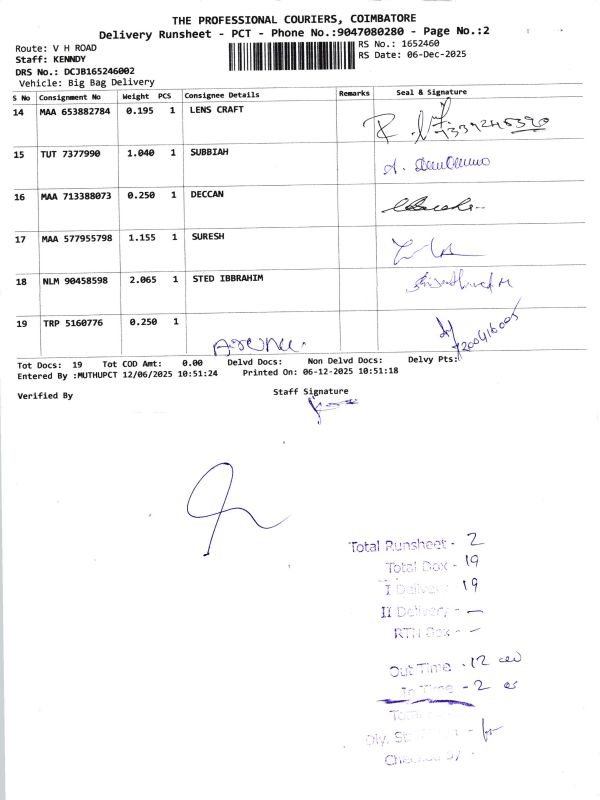 THE PROFESSIONAL COURIERS, COIMBATORE
Delivery Runsheet - PCT - Phone No.:9047080280 - Page No.:2
Route: V H ROAD
RS No.: 1652460
Staff: KENNDY
RS Date: 06-Dec-2025
DRS No.: DCJB165246002
Vehicle: Big Bag Delivery
S No Consignment No Weight PCS Consignee Details Remarks Seal & Signature
14 MAA 653882784 0.195 1 LENS CRAFT
15 TUT 7377990 1.040 1 SUBBIAH
16 MAA 713388073 0.250 1 DECCAN
17 MAA 577955798 1.155 1 SURESH
18 NLM 90458598 2.065 1 STED IBBRAHIM
19 TRP 5160776 0.250 1
Tot Docs: 19 Tot COD Amt: 0.00 Delvd Docs: Non Delvd Docs: Delvy Pts:
Entered By :MUTHUPCT 12/06/2025 10:51:24 Printed On: 06-12-2025 10:51:18
Verified By
Staff Signature
Total Runsheet - 2
Total Box - 19
I Delivery 19
II Delivery - —
RTN Box - -
Out Time - 12
In Time - 2